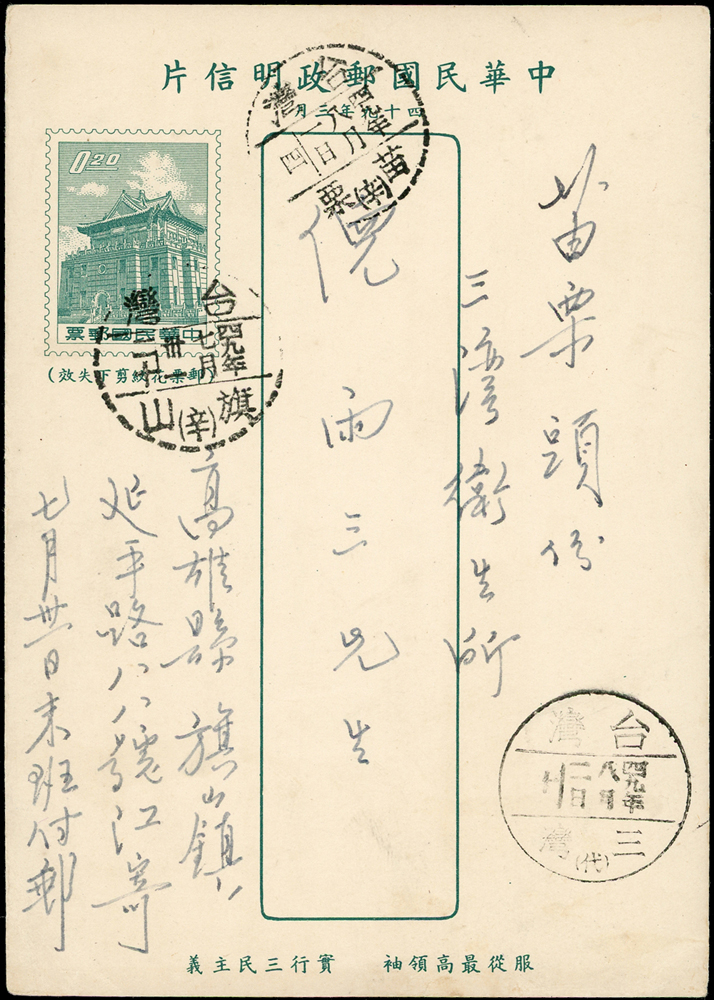 中華民國郵政明信片
四十九年三月
0.20
中華民國郵票
(郵票花紋剪下失效)
苗栗頭份
三灣衛生所
倪雨三先生
高雄縣旗山鎮
延平路八八號江寄
七月卅日末班付郵
台灣
四九年
八月
一日
四
苗栗
(辛)
台灣
四九年
七月
卅一
旗山
(辛)
台灣
四九年
八月
三灣
(代)
服從最高領袖 實行三民主義